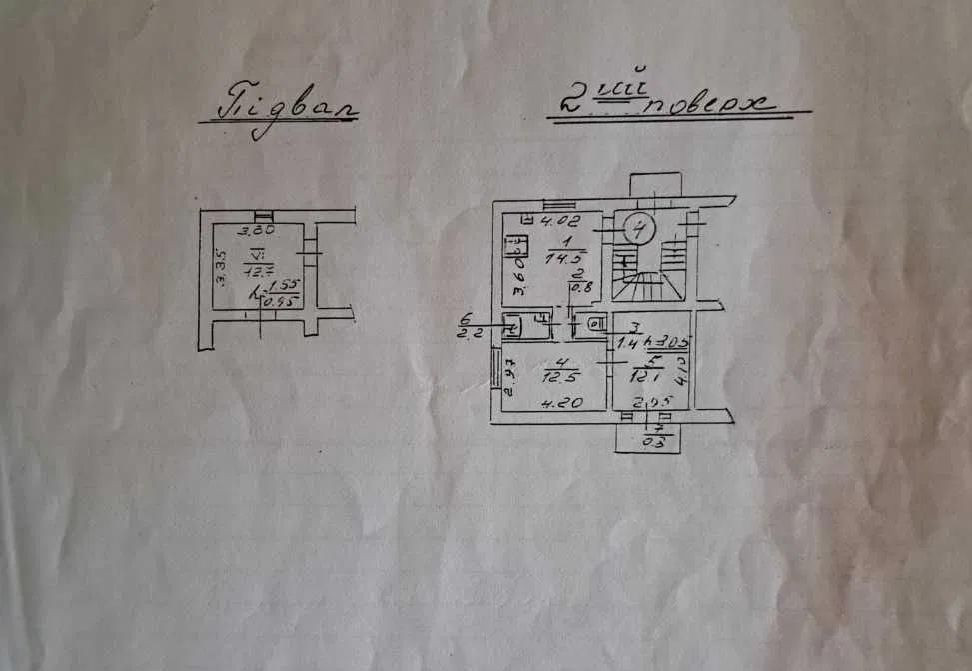 Підвал
2 ий поверх
3.80
3.35
VI
12.7
h-1.55
0.95
4.02
4
1
14.5
3.60
2
0.8
6
2.2
3
1.4
h=3.05
4
12.5
2.97
4.20
5
12.1
4.10
2.95
7
0.3